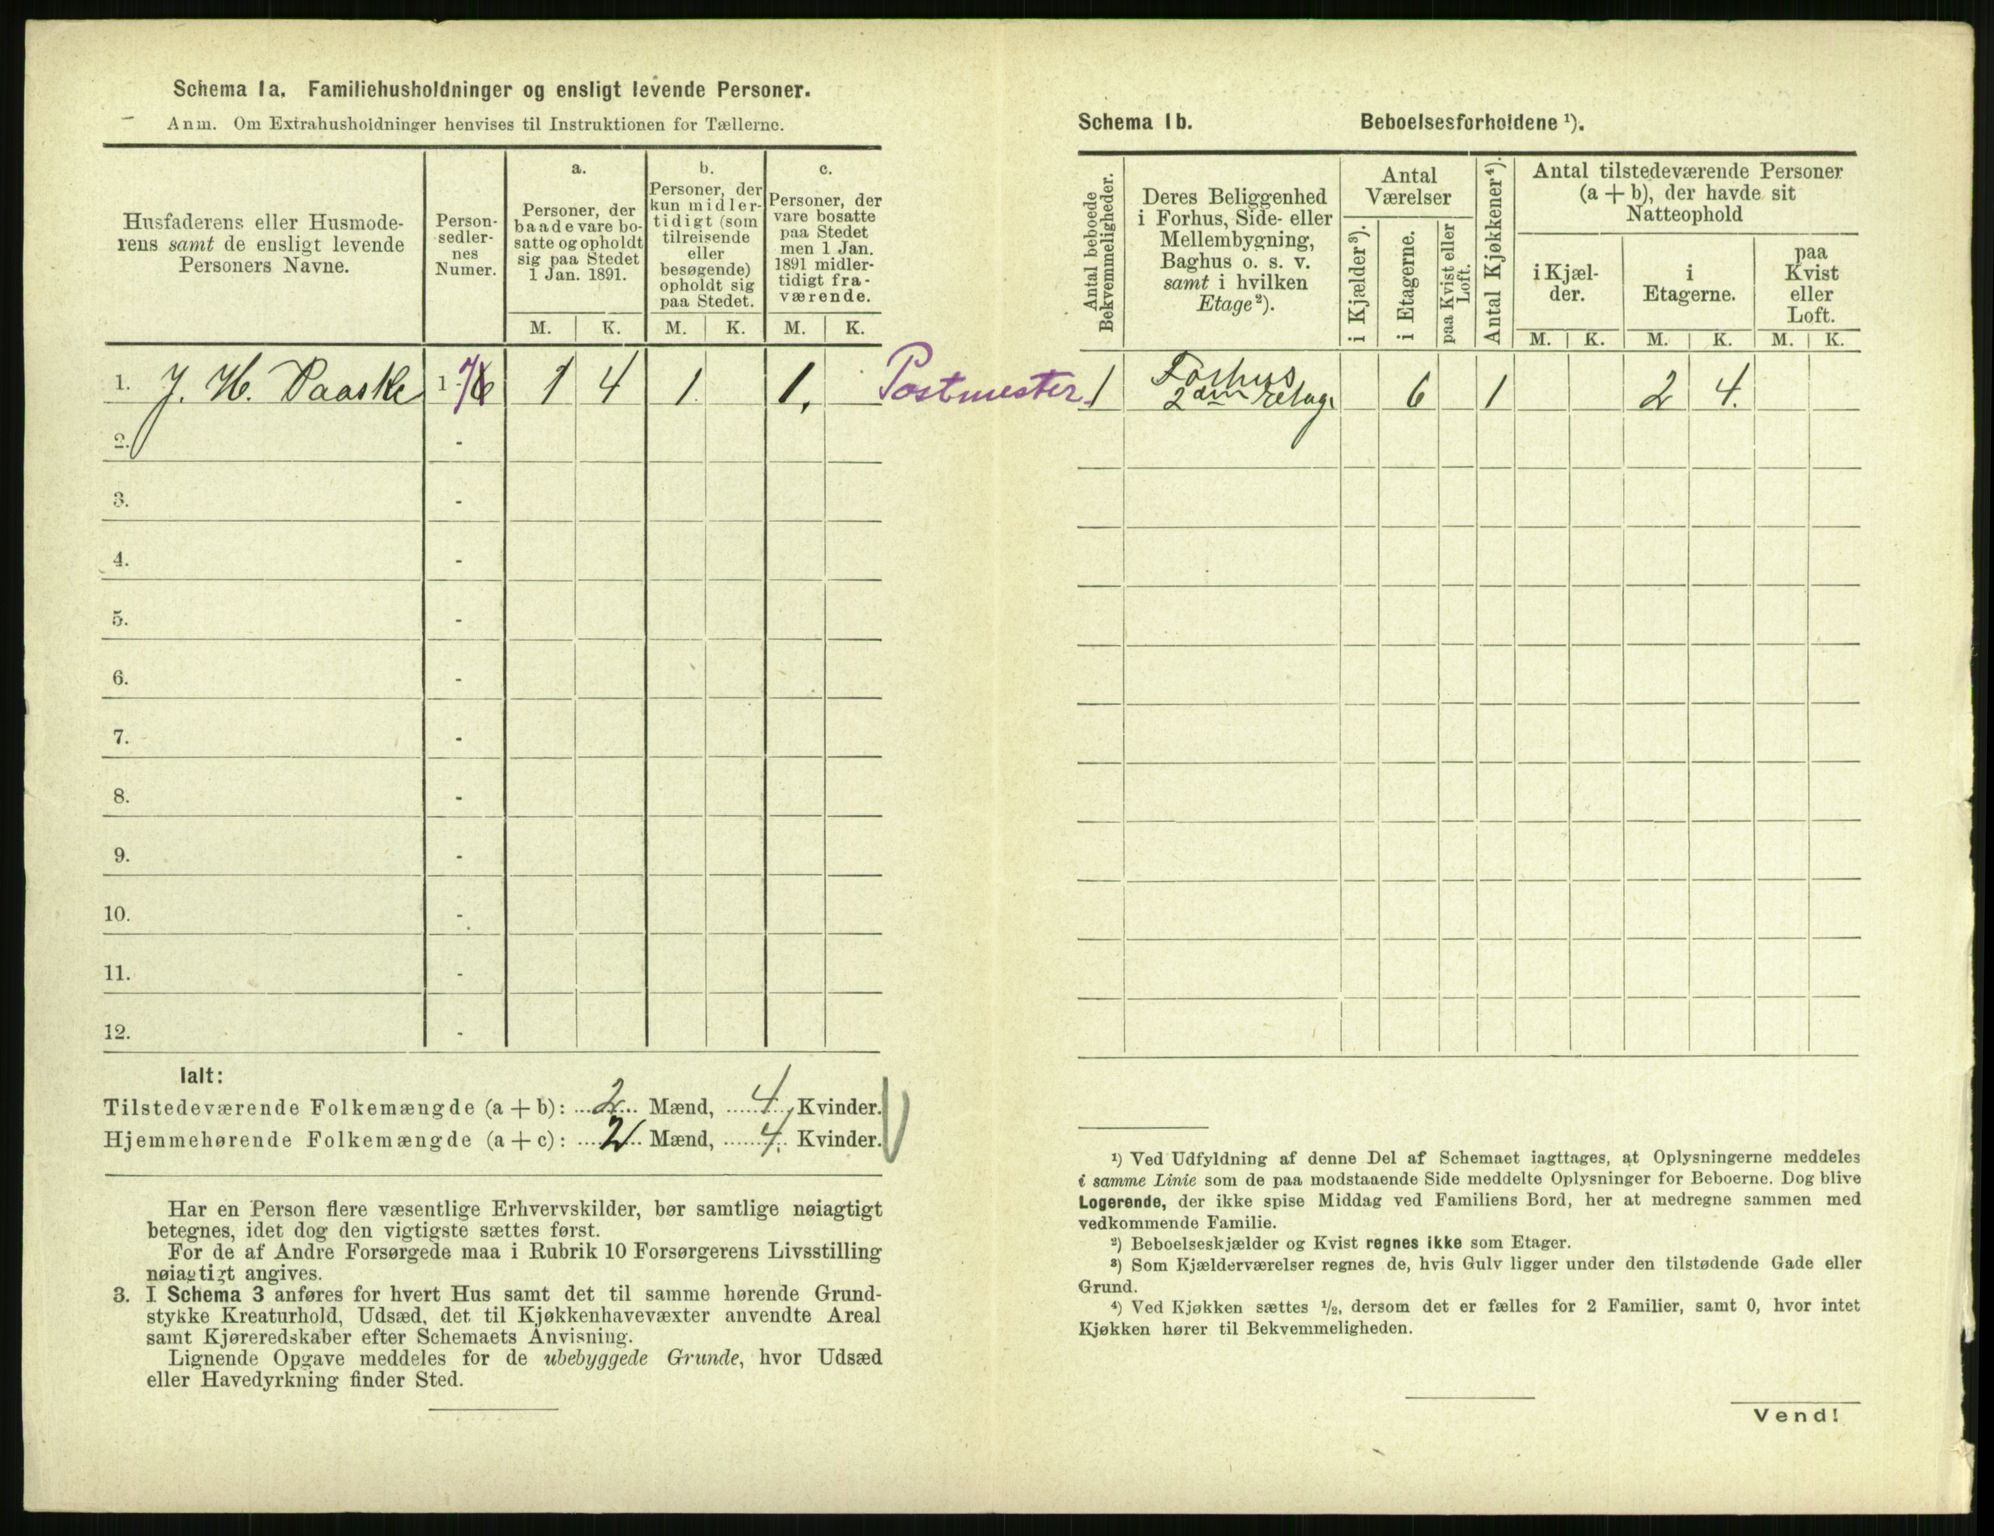 Schema 1a. Familiehusholdninger og ensligt levende Personer.
Anm. Om Extrahusholdninger henvises til Instruktionen for Tællerne.
Husfaderens eller Husmode-
rens samt de ensligt levende
Personers Navne.
Person-
sedler-
nes
Numer.
a.
Personer, der
baade vare bo-
satte og opholdt
sig paa Stedet
1 Jan. 1891.
b.
Personer, der
kun midler-
tidigt (som
tilreisende
eller
besøgende)
opholdt sig
paa Stedet.
c.
Personer, der
vare bosatte
paa Stedet
men 1 Jan.
1891 midler-
tidigt fra-
værende.
M. K. M. K. M. K.
1. J. H. Paaske 1 - 1 4 1 1. Postmester
2. -
3. -
4. -
5. -
6. -
7. -
8. -
9. -
10. -
11. -
12. -
Ialt:
Tilstedeværende Folkemængde (a + b): 2 Mænd, 4 Kvinder.
Hjemmehørende Folkemængde (a + c): 2 Mænd, 4 Kvinder.
Har en Person flere væsentlige Erhvervskilder, bør samtlige nøiagtigt
betegnes, idet dog den vigtigste sættes først.
For de af Andre Forsørgede maa i Rubrik 10 Forsørgerens Livsstilling
nøiagtigt angives.
3. I Schema 3 anføres for hvert Hus samt det til samme hørende Grund-
stykke Kreaturhold, Udsæd, det til Kjøkkenhavevæxter anvendte Areal
samt Kjøreredskaber efter Schemaets Anvisning.
Lignende Opgave meddeles for de ubebyggede Grunde, hvor Udsæd
eller Havedyrkning finder Sted.
Schema 1b. Beboelsesforholdene ¹).
Antal beboede
Bekvemmeligheder.
Deres Beliggenhed
i Forhus, Side- eller
Mellembygning,
Baghus o. s. v.
samt i hvilken
Etage²).
Antal
Værelser
i Kjælder³).
i Etagerne.
paa Kvist eller
Loft.
Antal Kjøkkener⁴).
Antal tilstedeværende Personer
(a + b), der havde sit
Natteophold
i Kjæl-
der.
i
Etagerne.
paa
Kvist
eller
Loft.
M. K. M. K. M. K.
1 Forhus
2den Etage 6 1 2 4.
¹) Ved Udfyldning af denne Del af Schemaet iagttages, at Oplysningerne meddeles
i samme Linie som de paa modstaaende Side meddelte Oplysninger for Beboerne. Dog blive
Logerende, der ikke spise Middag ved Familiens Bord, her at medregne sammen med
vedkommende Familie.
²) Beboelseskjælder og Kvist regnes ikke som Etager.
³) Som Kjælderværelser regnes de, hvis Gulv ligger under den tilstødende Gade eller
Grund.
⁴) Ved Kjøkken sættes ½, dersom det er fælles for 2 Familier, samt 0, hvor intet
Kjøkken hører til Bekvemmeligheden.
Vend!